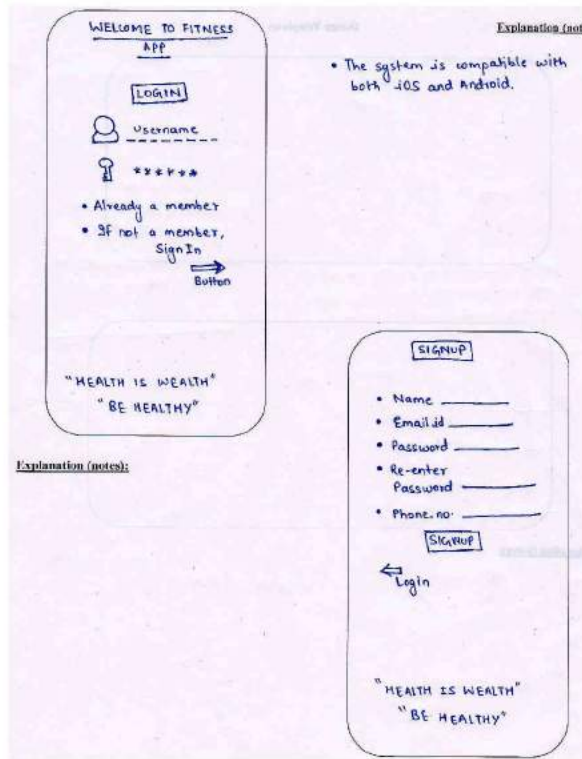 WELLCOME TO FITNESS
APP
LOGIN
Username
******
• Already a member
• If not a member,
Sign In
Button
"HEALTH IS WEALTH"
"BE HEALTHY"
Explanation (not
• The system is compatible with
both iOS and Android.
Explanation (notes):
SIGNUP
• Name
• Email id
• Password
• Re-enter
Password
• Phone. no.
SIGNUP
Login
"HEALTH IS WEALTH"
"BE HEALTHY"